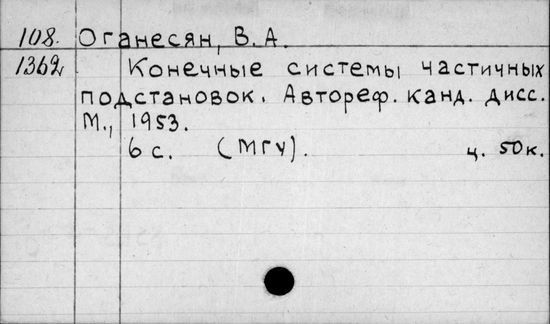 108. Оганесян, В.А.
1362 Конечные системы частичных
подстановок. Автореф. канд. дисс.
М., 1953.
6 с. (МГУ). ц. 50 к.